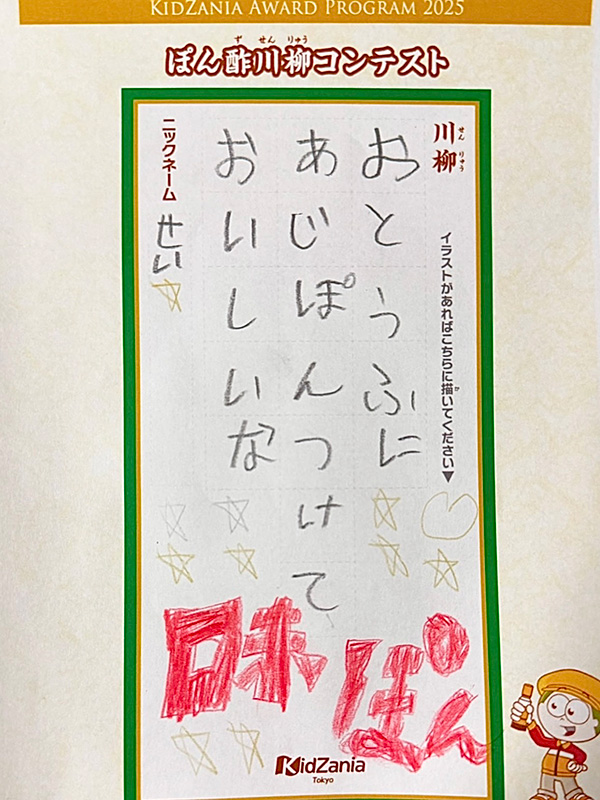 KIDZANIA AWARD PROGRAM 2025
ぽん酢川柳コンテスト
ず せん りゅう
川柳
せん りゅう
イラストがあればこちらに描いてください▼
か
おとうふに
あじぽんつけて
おいしいな
ニックネーム
せい
味ぽん
KidZania
Tokyo